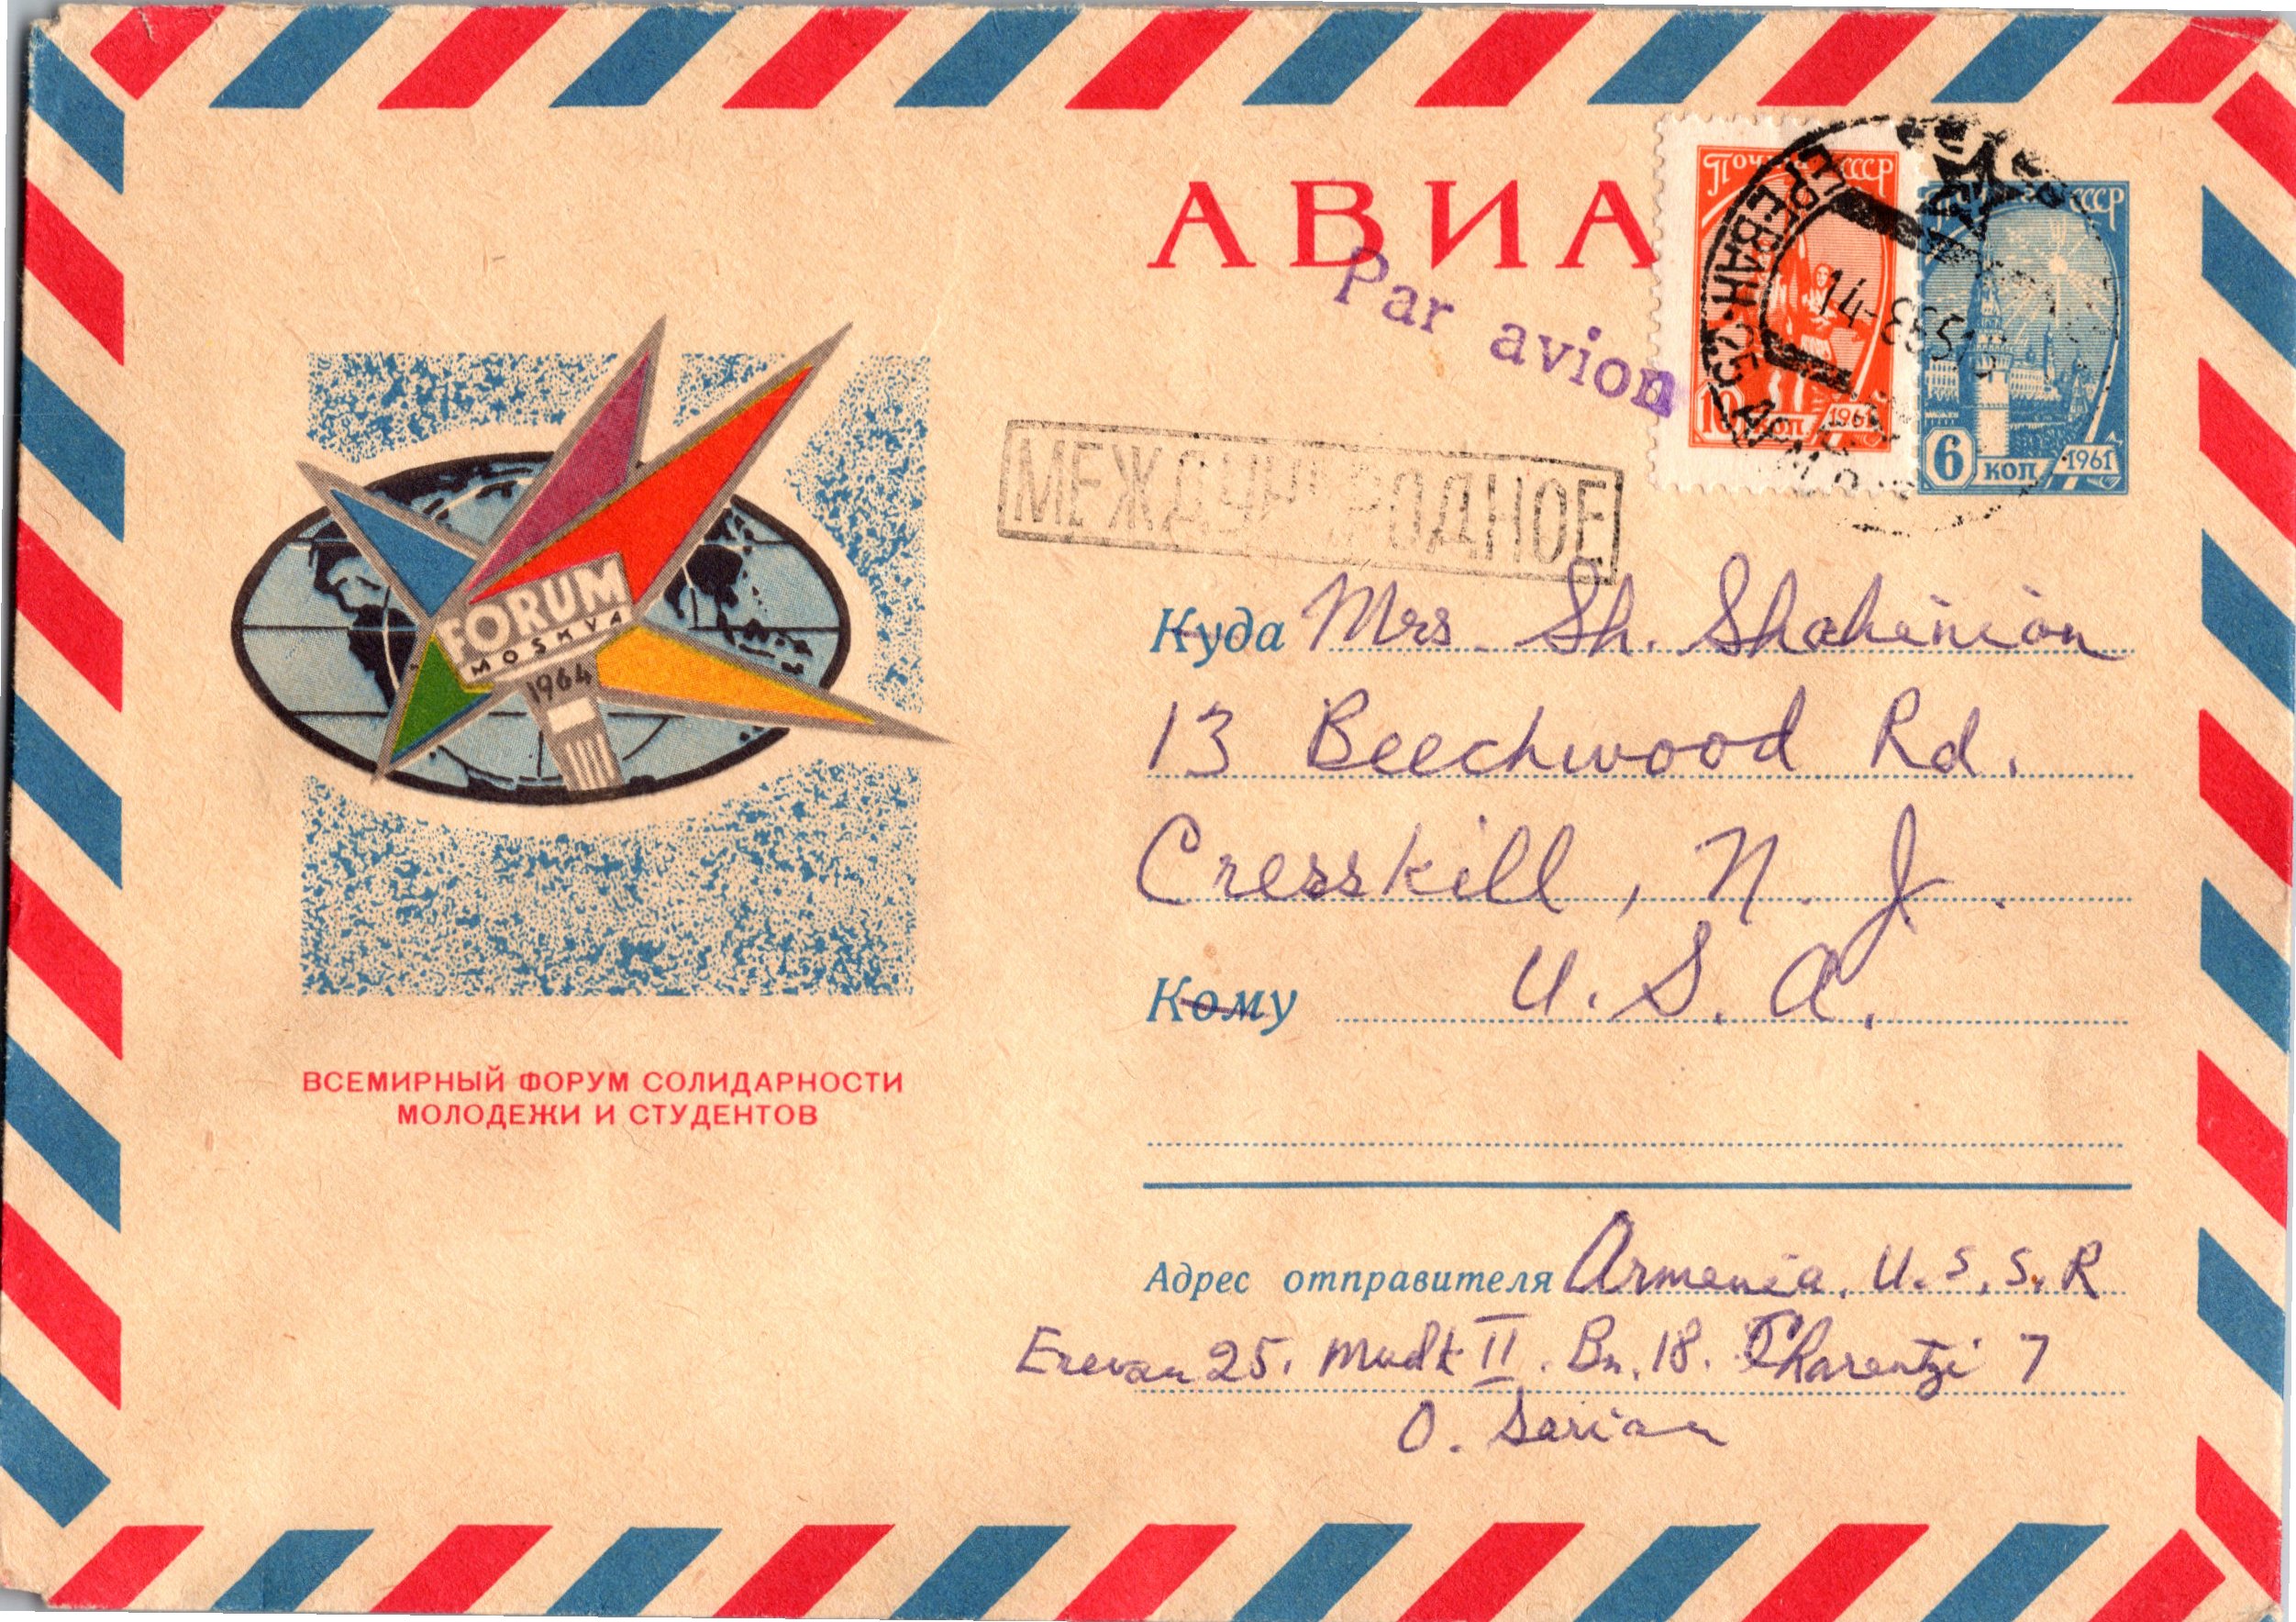 АВИА
Par avion
МЕЖДУНАРОДНОЕ
Почта СССР
10 коп 1961
СССР
6 коп 1961
ЕРЕВАН
FORUM
MOSKVA
1964
ВСЕМИРНЫЙ ФОРУМ СОЛИДАРНОСТИ
МОЛОДЕЖИ И СТУДЕНТОВ
Куда Mrs. Sh. Shahinian
13 Beechwood Rd.
Cresskill, N. J.
Кому U. S. A.
Адрес отправителя Armenia, U.S.S.R
Erevan 25. II. Bn. 18. Charentzi 7
O. Sarian